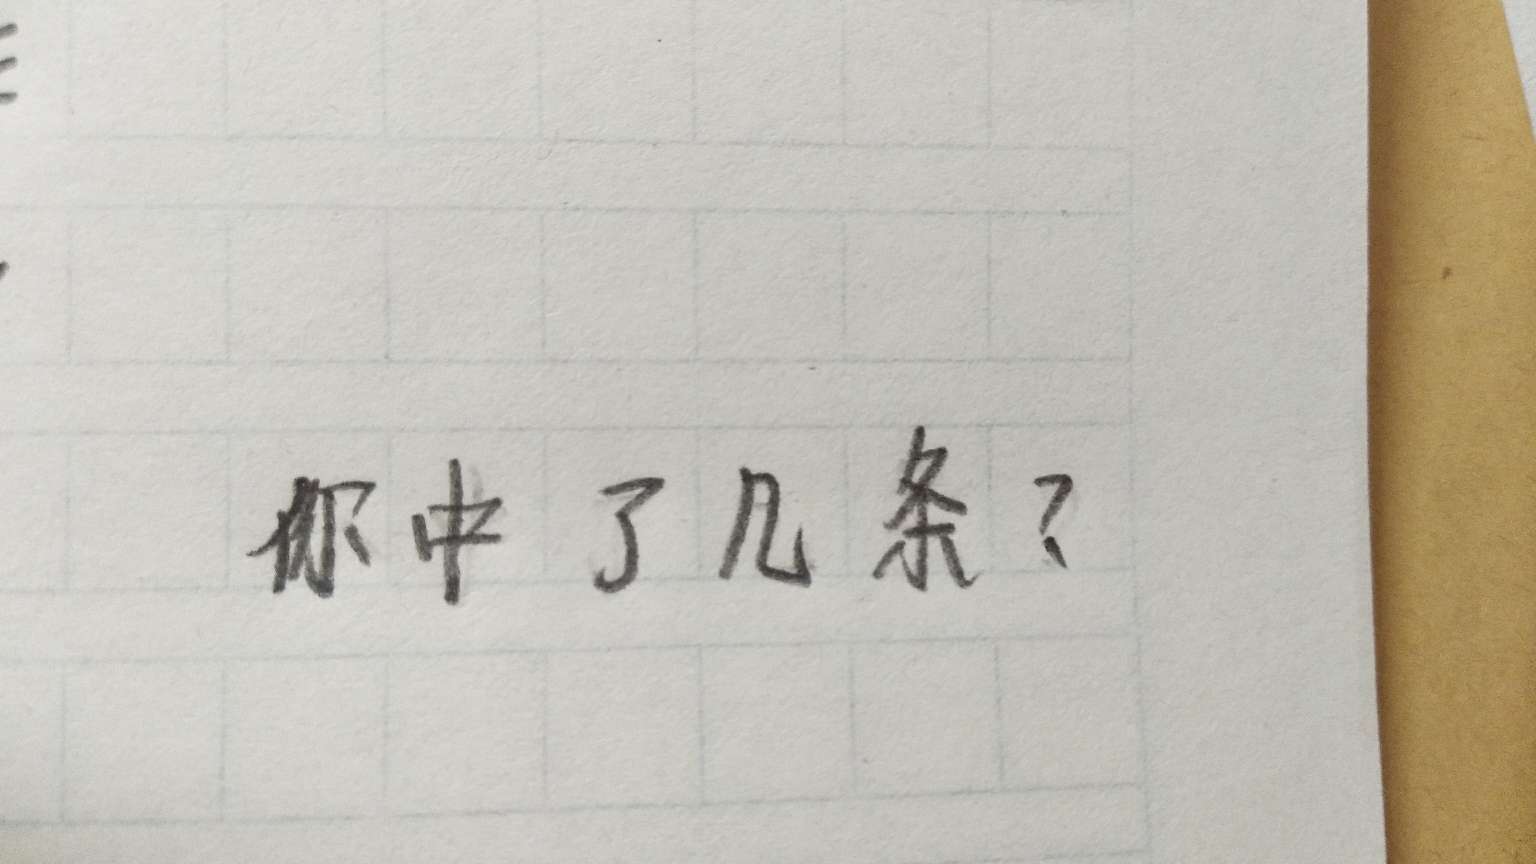 你中了几条?